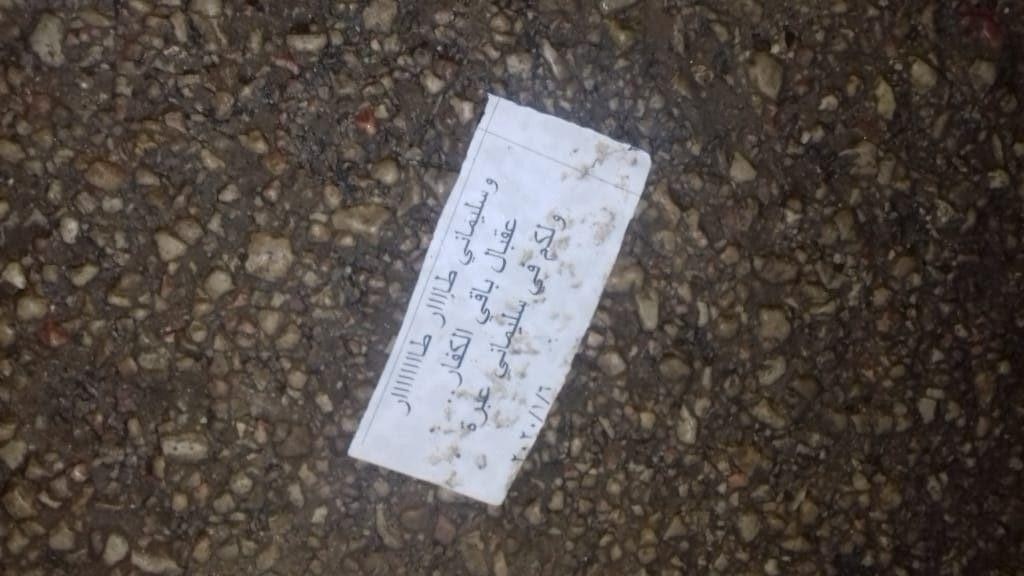 وسليماني طاااار طااااااااار
عقبال باقي الكفار..
ولكم في سليماني عبرة
٢٠٢٠/١/٦